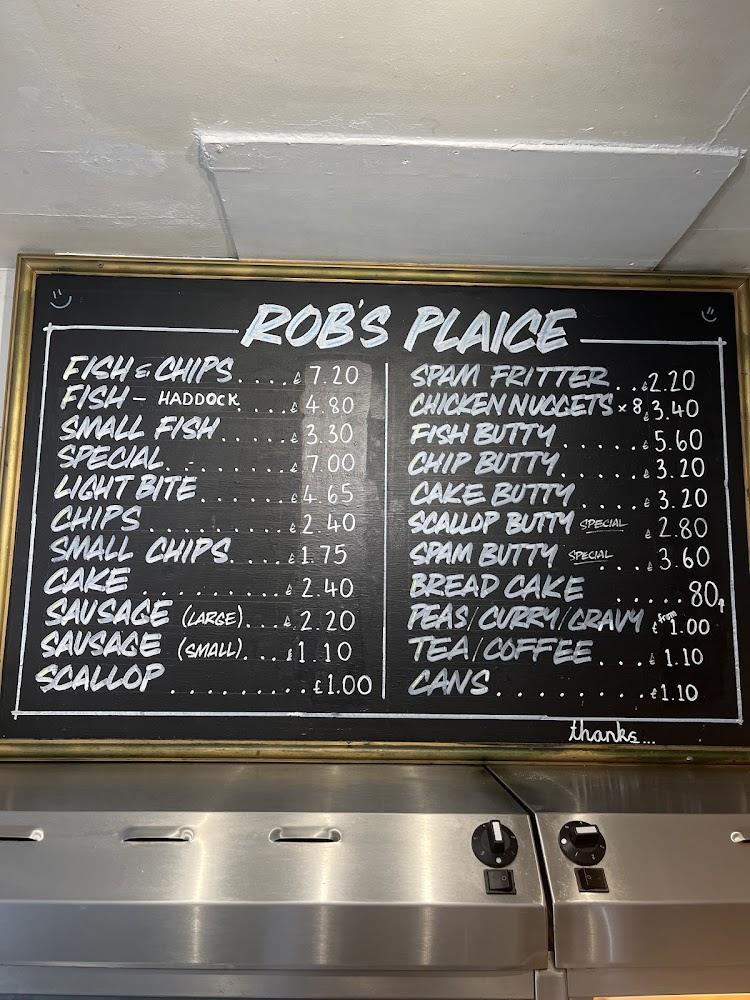 ROB'S PLAICE
FISH & CHIPS....£7.20
FISH - HADDOCK....£4.80
SMALL FISH.....£3.30
SPECIAL.........£7.00
LIGHT BITE......£4.65
CHIPS..........£2.40
SMALL CHIPS....£1.75
CAKE..........£2.40
SAUSAGE (LARGE)....£2.20
SAUSAGE (SMALL)....£1.10
SCALLOP..........£1.00
SPAM FRITTER..£2.20
CHICKEN NUGGETS x 8 £3.40
FISH BUTTY......£5.60
CHIP BUTTY......£3.20
CAKE BUTTY....£3.20
SCALLOP BUTTY SPECIAL £2.80
SPAM BUTTY SPECIAL....£3.60
BREAD CAKE.....80p
PEAS/CURRY/GRAVY from £1.00
TEA/COFFEE....£1.10
CANS.........£1.10
thanks...